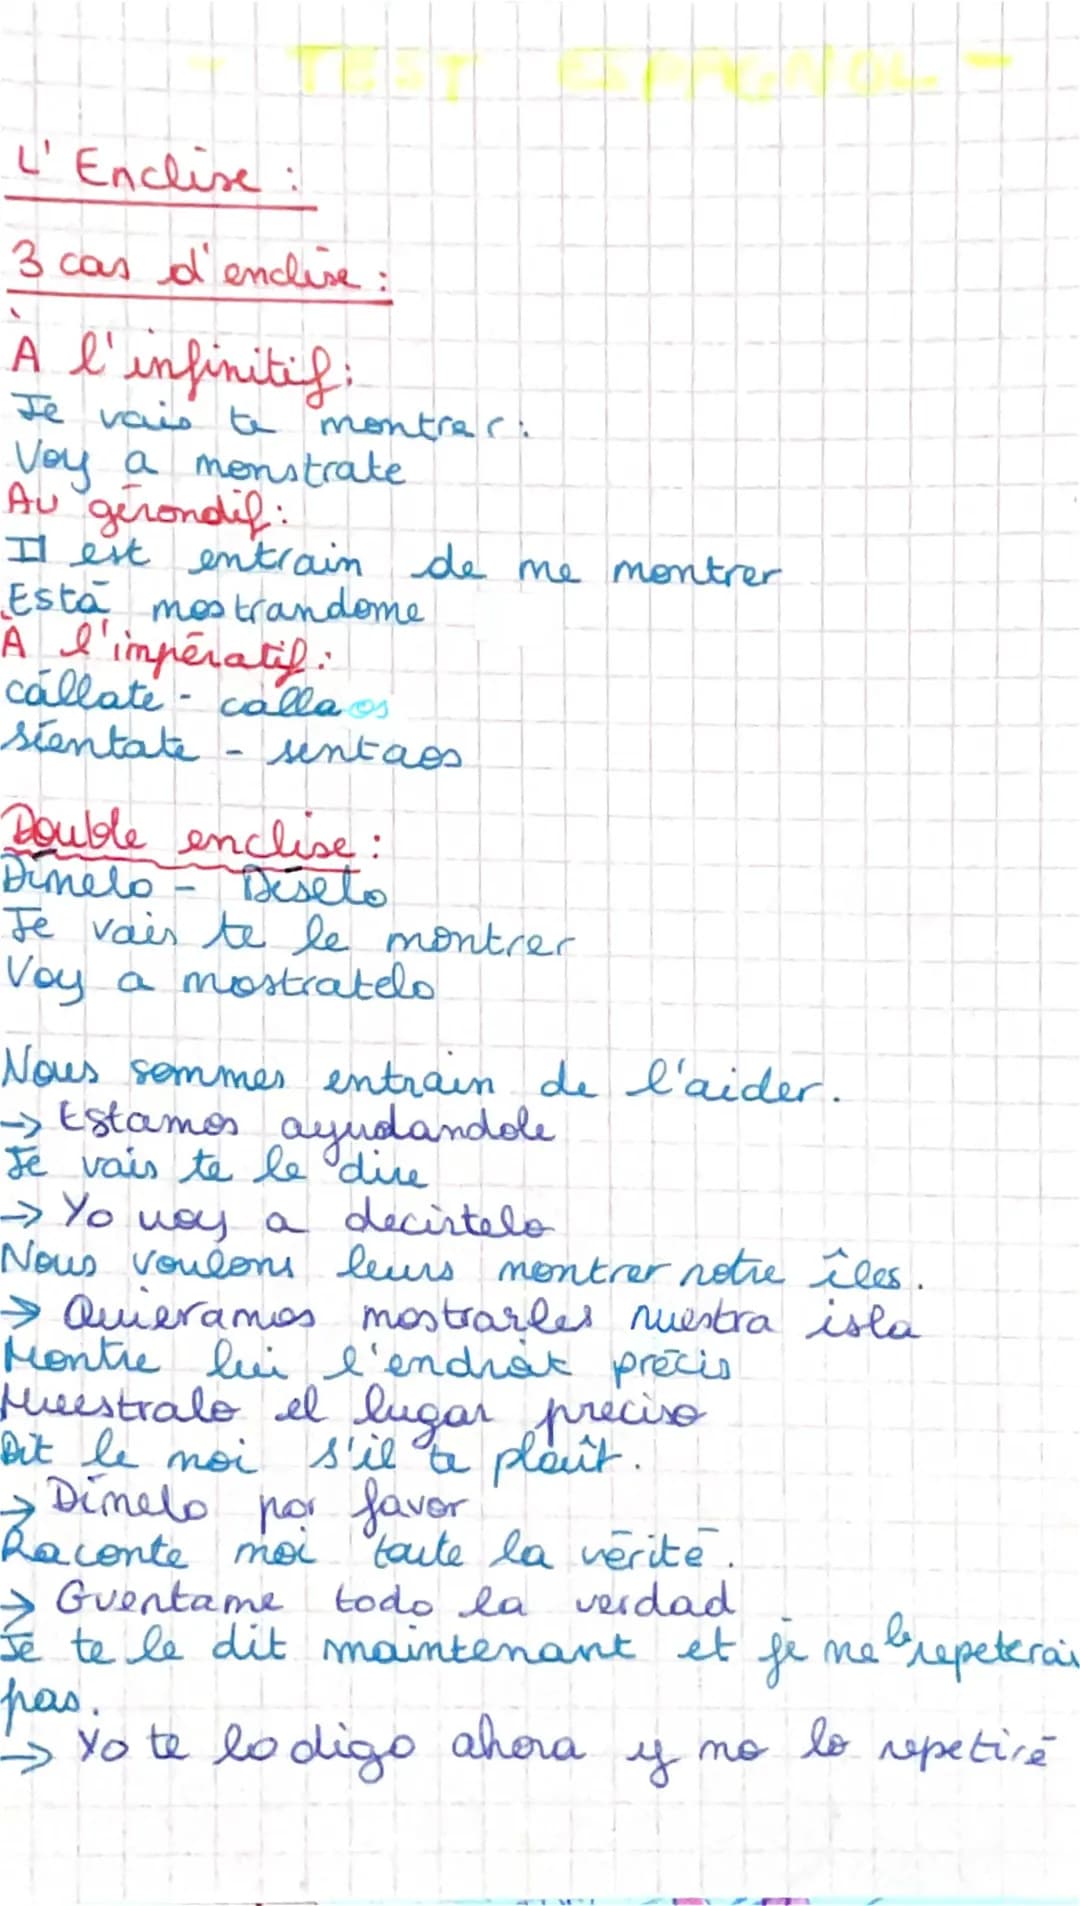 - TEST ESPAGNOL -
L'Enclise :
3 cas d'enclise :
À l'infinitif :
Je vais te montrer :
Voy a monstrate
Au gérondif :
Il est entrain de me montrer
Está mostrandome
À l'impératif :
cállate - callaos
síentate - sentaos
Double enclise :
Dímelo - Díselo
Je vais te le montrer
Voy a mostratelo
Nous sommes entrain de l'aider.
→ Estamos ayudandole
Je vais te le dire
→ Yo voy a decirtelo
Nous voulons leurs montrer notre îles.
→ Quieramos mostrarles nuestra isla
Montre lui l'endroit précis
Muestralo el lugar preciso
Dit le moi s'il te plaît.
→ Dímelo por favor
Raconte moi toute la vérité.
→ Cuentame todo la verdad
Je te le dit maintenant et je ne le repeterai
pas.
→ Yo te lo digo ahora y no lo repetiré